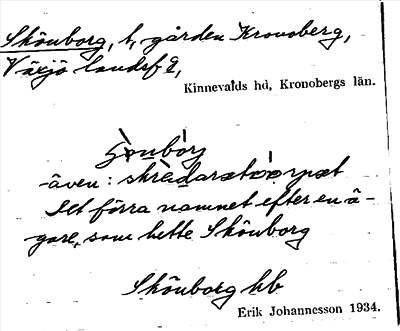 Skönborg, l, gården Kronoberg,
Växjö landsf g,
Kinnevalds hd, Kronobergs län.
även: skrædaratorpæt
Det förra namnet efter en ä-
gare, som hette Skönborg
Skönborg hb
Erik Johannesson 1934.